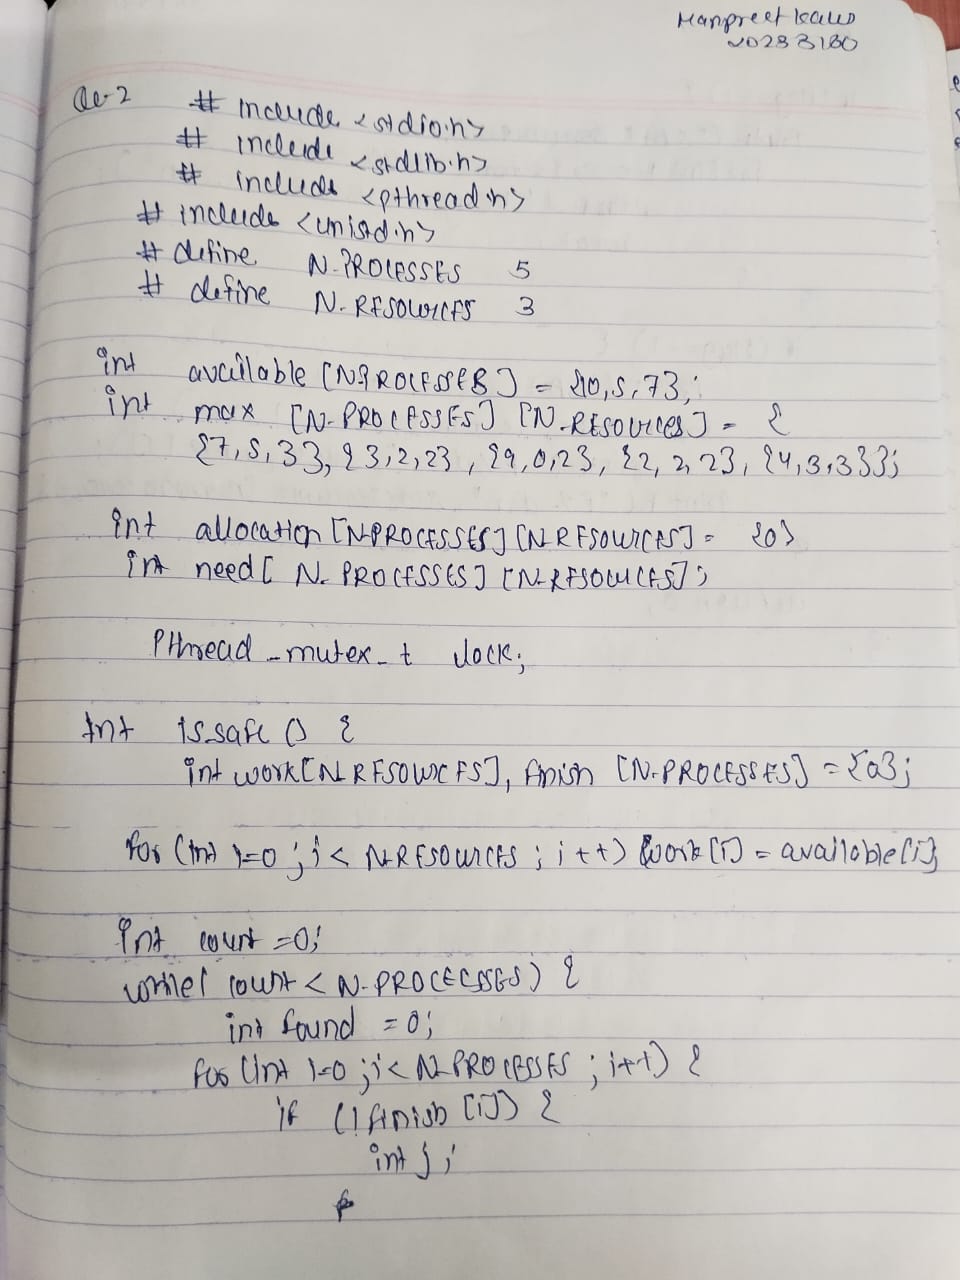 Manpreet Kaur
Qu-2 # include <stdio.h>
# include <stdlib.h>
# include <pthread.h>
# include <unistd.h>
# define N_PROCESSES 5
# define N_RESOURCES 3
int available [N_PROCESSES] = {10,5,7};
int max [N_PROCESSES] [N_RESOURCES] = {
{7,5,3}, {3,2,2}, {9,0,2}, {2,2,2}, {4,3,3}};
int allocation [N_PROCESSES] [N_RESOURCES] = {0}
int need [N_PROCESSES] [N_RESOURCES];
Pthread_mutex_t lock;
Int is_safe () {
int work [N_RESOURCES], finish [N_PROCESSES] = {0};
for (int i=0; i < N_RESOURCES; i++) work[i] = available[i];
int count =0;
while( count < N_PROCECSSES) {
int found =0;
for (int i=0; i< N_PROCESSES; i++) {
if (!finish [i]) {
int j;